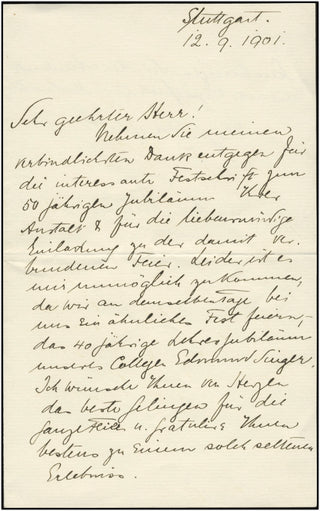 Stuttgart.
12. 9. 1901.
Sehr geehrter Herr!
Nehmen Sie meinen
verbindlichsten Dank entgegen für
die interessante Festschrift zum
50 jährigen Jubiläum Ihrer
Anstalt & für die liebenswürdige
Einladung zu der damit ver-
bundenen Feier. Leider ist es
mir unmöglich zu kommen,
da wir an demselben Tage bei
uns ein ähnliches Fest feiern,
das 40 jährige Lehrerjubiläum
unseres Collegen Edmund Singer.
Ich wünsche Ihnen von Herzen
das beste Gelingen für die
ganze Feier u. gratulire Ihnen
bestens zu einem solch seltenen
Erlebniss.